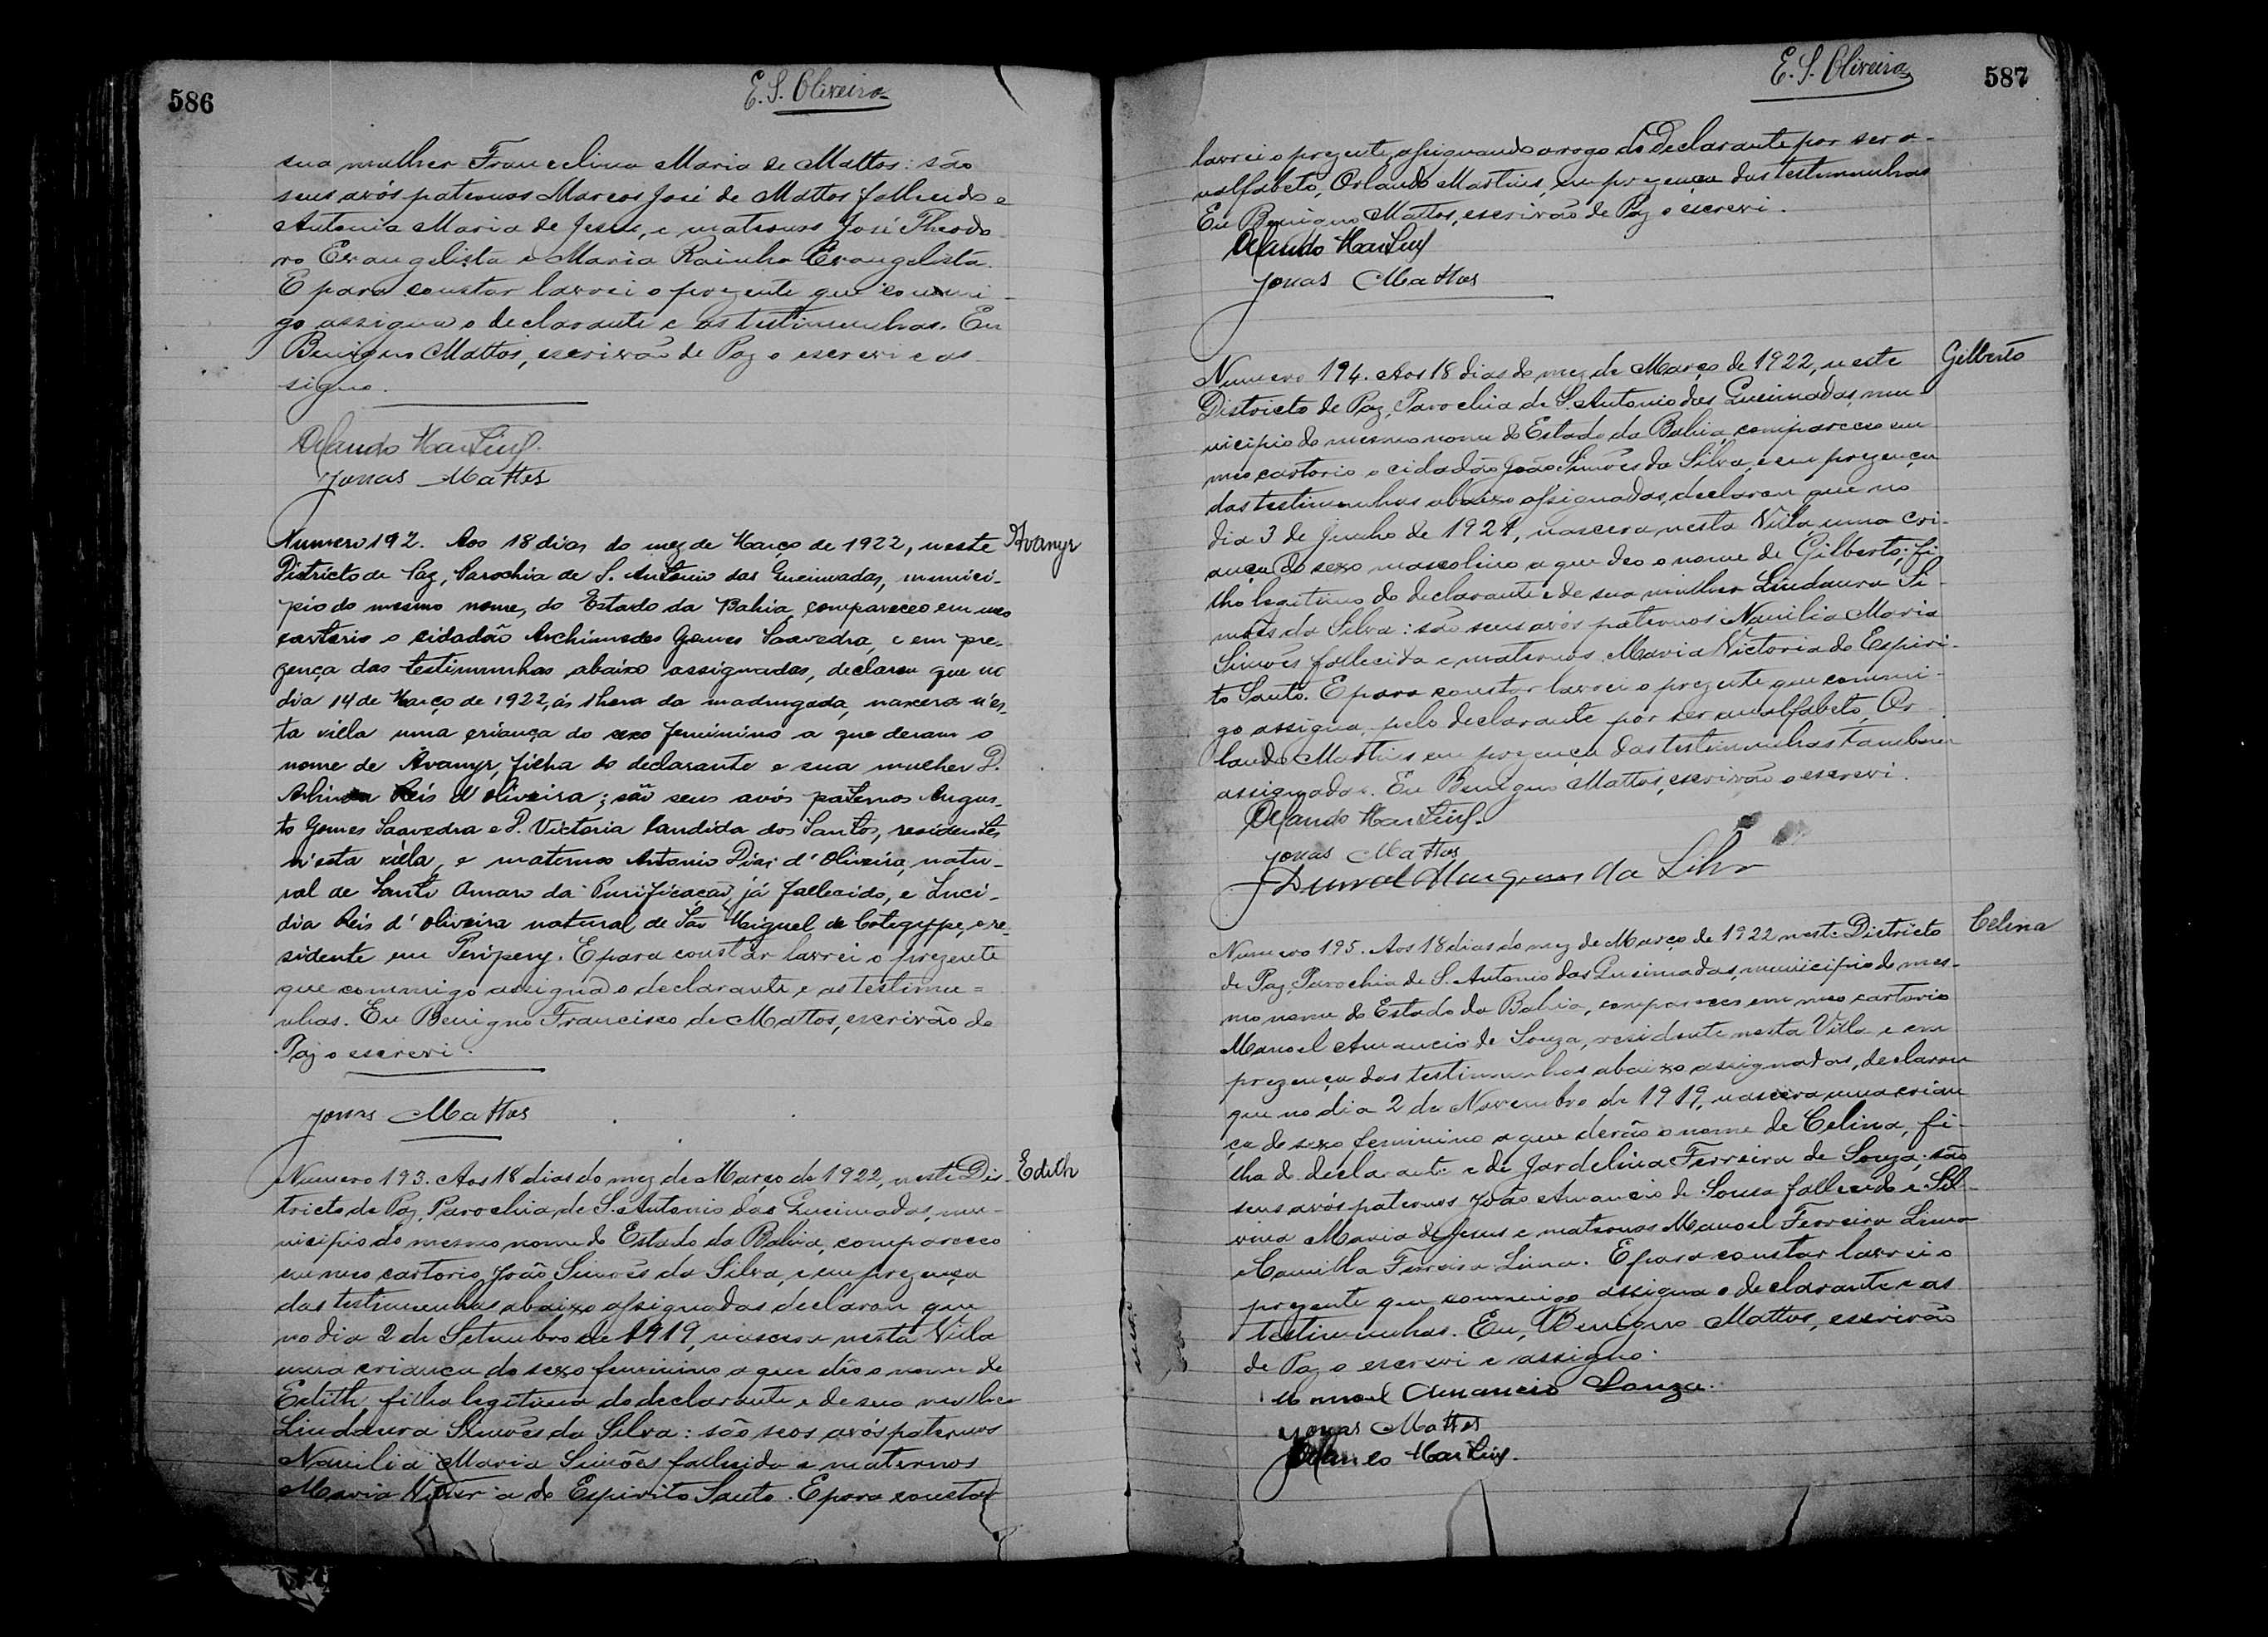 586
E. S. Oliveira
sua mulher Francelina Maria de Mattos: são
seus avós paternos Marcos José de Mattos fallecido e
Antonia Maria de Jesus, e maternos José Theodo-
ro Evangelista e Maria Rainha Evangelista.
E para constar lavrei o prezente que commi-
go assigna o declarante e as testimunhas. Eu
Benigno Mattos, escrivão de Paz o escrevi e as-
signo.
Orlando Martins.
Jonas Mattos
Numero 192. Aos 18 dias do mez de Março de 1922, neste
Avanyr
Districto de Paz, Parochia de S. Antonio das Queimadas, munici-
pio do mesmo nome, do Estado da Bahia, compareceo em meo
cartorio o cidadão Archimedes Gomes Saavedra, e em pre-
zença das testimunhas abaixo assignadas, declarou que no
dia 14 de Março de 1922, ás 1 hora da madrugada, nascera n'es-
ta villa uma criança do sexo feminino a que deram o
nome de Avanyr, filha do declarante e sua mulher D.
Reis d'Oliveira; são seus avós paternos Augus-
to Gomes Saavedra e D. Victoria Candida dos Santos, residentes
n'esta villa, e maternos Antonio Dias d'Oliveira, natu-
ral de Santo Amaro da Purificação, já fallecido, e Luci-
dia Reis d'Oliveira natural de São Miguel de Cotegype, e re-
sidente em Peripery. E para constar lavrei o prezente
que commigo assigna o declarante e as testimu=
nhas. Eu Benigno Francisco de Mattos, escrivão de
Paz o escrevi.
Jonas Mattos
Numero 193. Aos 18 dias do mez de Março de 1922, neste Dis-
Edith
tricto de Paz, Parochia de S. Antonio das Queimadas, mu-
nicipio do mesmo nome do Estado da Bahia, compareceo
em meo cartorio João Simões da Silva, e em prezença
das testimunhas abaixo assignadas declarou que
no dia 2 de Setembro de 1919, nascera nesta Villa
uma criança do sexo feminino a que deo o nome de
Edith, filha legitima do declarante e de sua mulher
Lindaura Simões da Silva: são seos avós paternos
Nanilia Maria Simões fallecida e maternos
Maria Victoria do Espirito Santo. E para constar
E. S. Oliveira
587
lavrei o prezente, assignando a rogo do Declarante por ser a-
nalfabeto, Orlando Martins, em prezença das testimunhas
Eu Benigno Mattos, escrivão de Paz o escrevi.
Orlando Martins
Jonas Mattos
Numero 194. Aos 18 dias do mez de Março de 1922, neste
Gilberto
Districto de Paz, Parochia de S. Antonio das Queimadas, mu-
nicipio do mesmo nome do Estado da Bahia, compareceo em
meo cartorio o cidadão João Simões da Silva, e em prezença
das testimunhas abaixo assignadas, declarou que no
dia 3 de Junho de 1921, nascera nesta Villa uma cri-
ança do sexo masculino a que deo o nome de Gilberto; fi-
lho legitimo do declarante e de sua mulher Lindaura Si-
mões da Silva: são seus avós paternos Nanilia Maria
Simões fallecida e maternos Maria Victoria do Espiri-
to Santo. E para constar lavrei o prezente que commi-
go assigna, pelo declarante por ser analfabeto, Or-
lando Martins em prezença das testimunhas tambem
assignadas. Eu Benigno Mattos, escrivão o escrevi.
Orlando Martins.
Jonas Mattos
Durval Marques da Silva
Numero 195. Aos 18 dias do mez de Março de 1922 neste Districto
Celina
de Paz, Parochia de S. Antonio das Queimadas, municipio do mes-
mo nome do Estado da Bahia, compareceo em meo cartorio
Manoel Amancio de Souza, residente nesta Villa e em
prezença das testimunhas abaixo assignadas, declarou
que no dia 2 de Novembro de 1919, nascera uma crian
ça do sexo feminino a que derão o nome de Celina, fi-
lha do declarante e de Jardelina Ferreira de Souza; são
seus avós paternos João Amancio de Sousa fallecido e Sil-
vina Maria de Jesus e maternos Manoel Ferreira Lima
e Camilla Ferreira Lima. E para constar lavrei o
prezente que commigo assigna o declarante e as
testimunhas. Eu, Benigno Mattos, escrivão
de Paz o escrevi e assigno.
Manoel Amancio Souza.
Jonas Mattos
Orlando Martins.